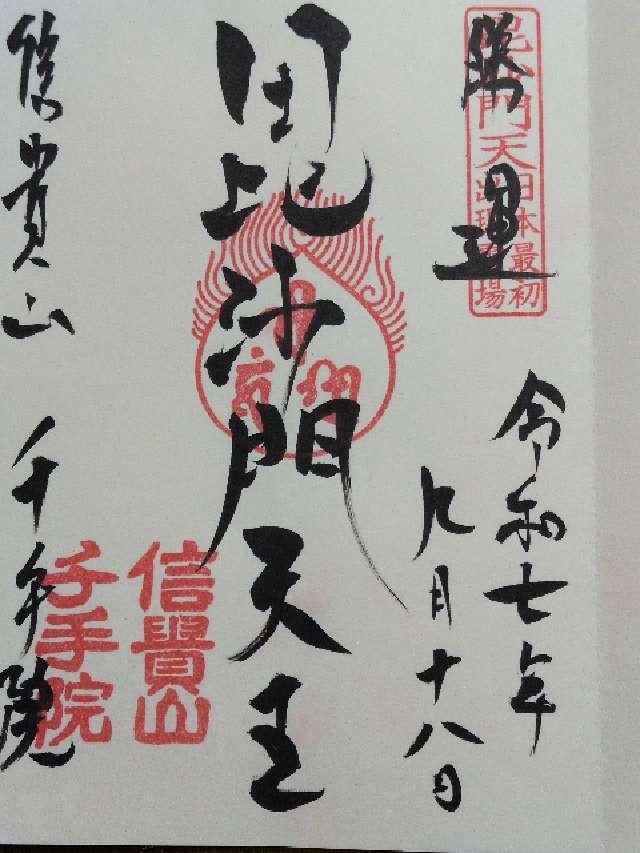 勝運
毘沙門天
日本最初
出現霊場
令和七年
九月十八日
毘沙門天王
信貴山
千手院
信貴山 千手院